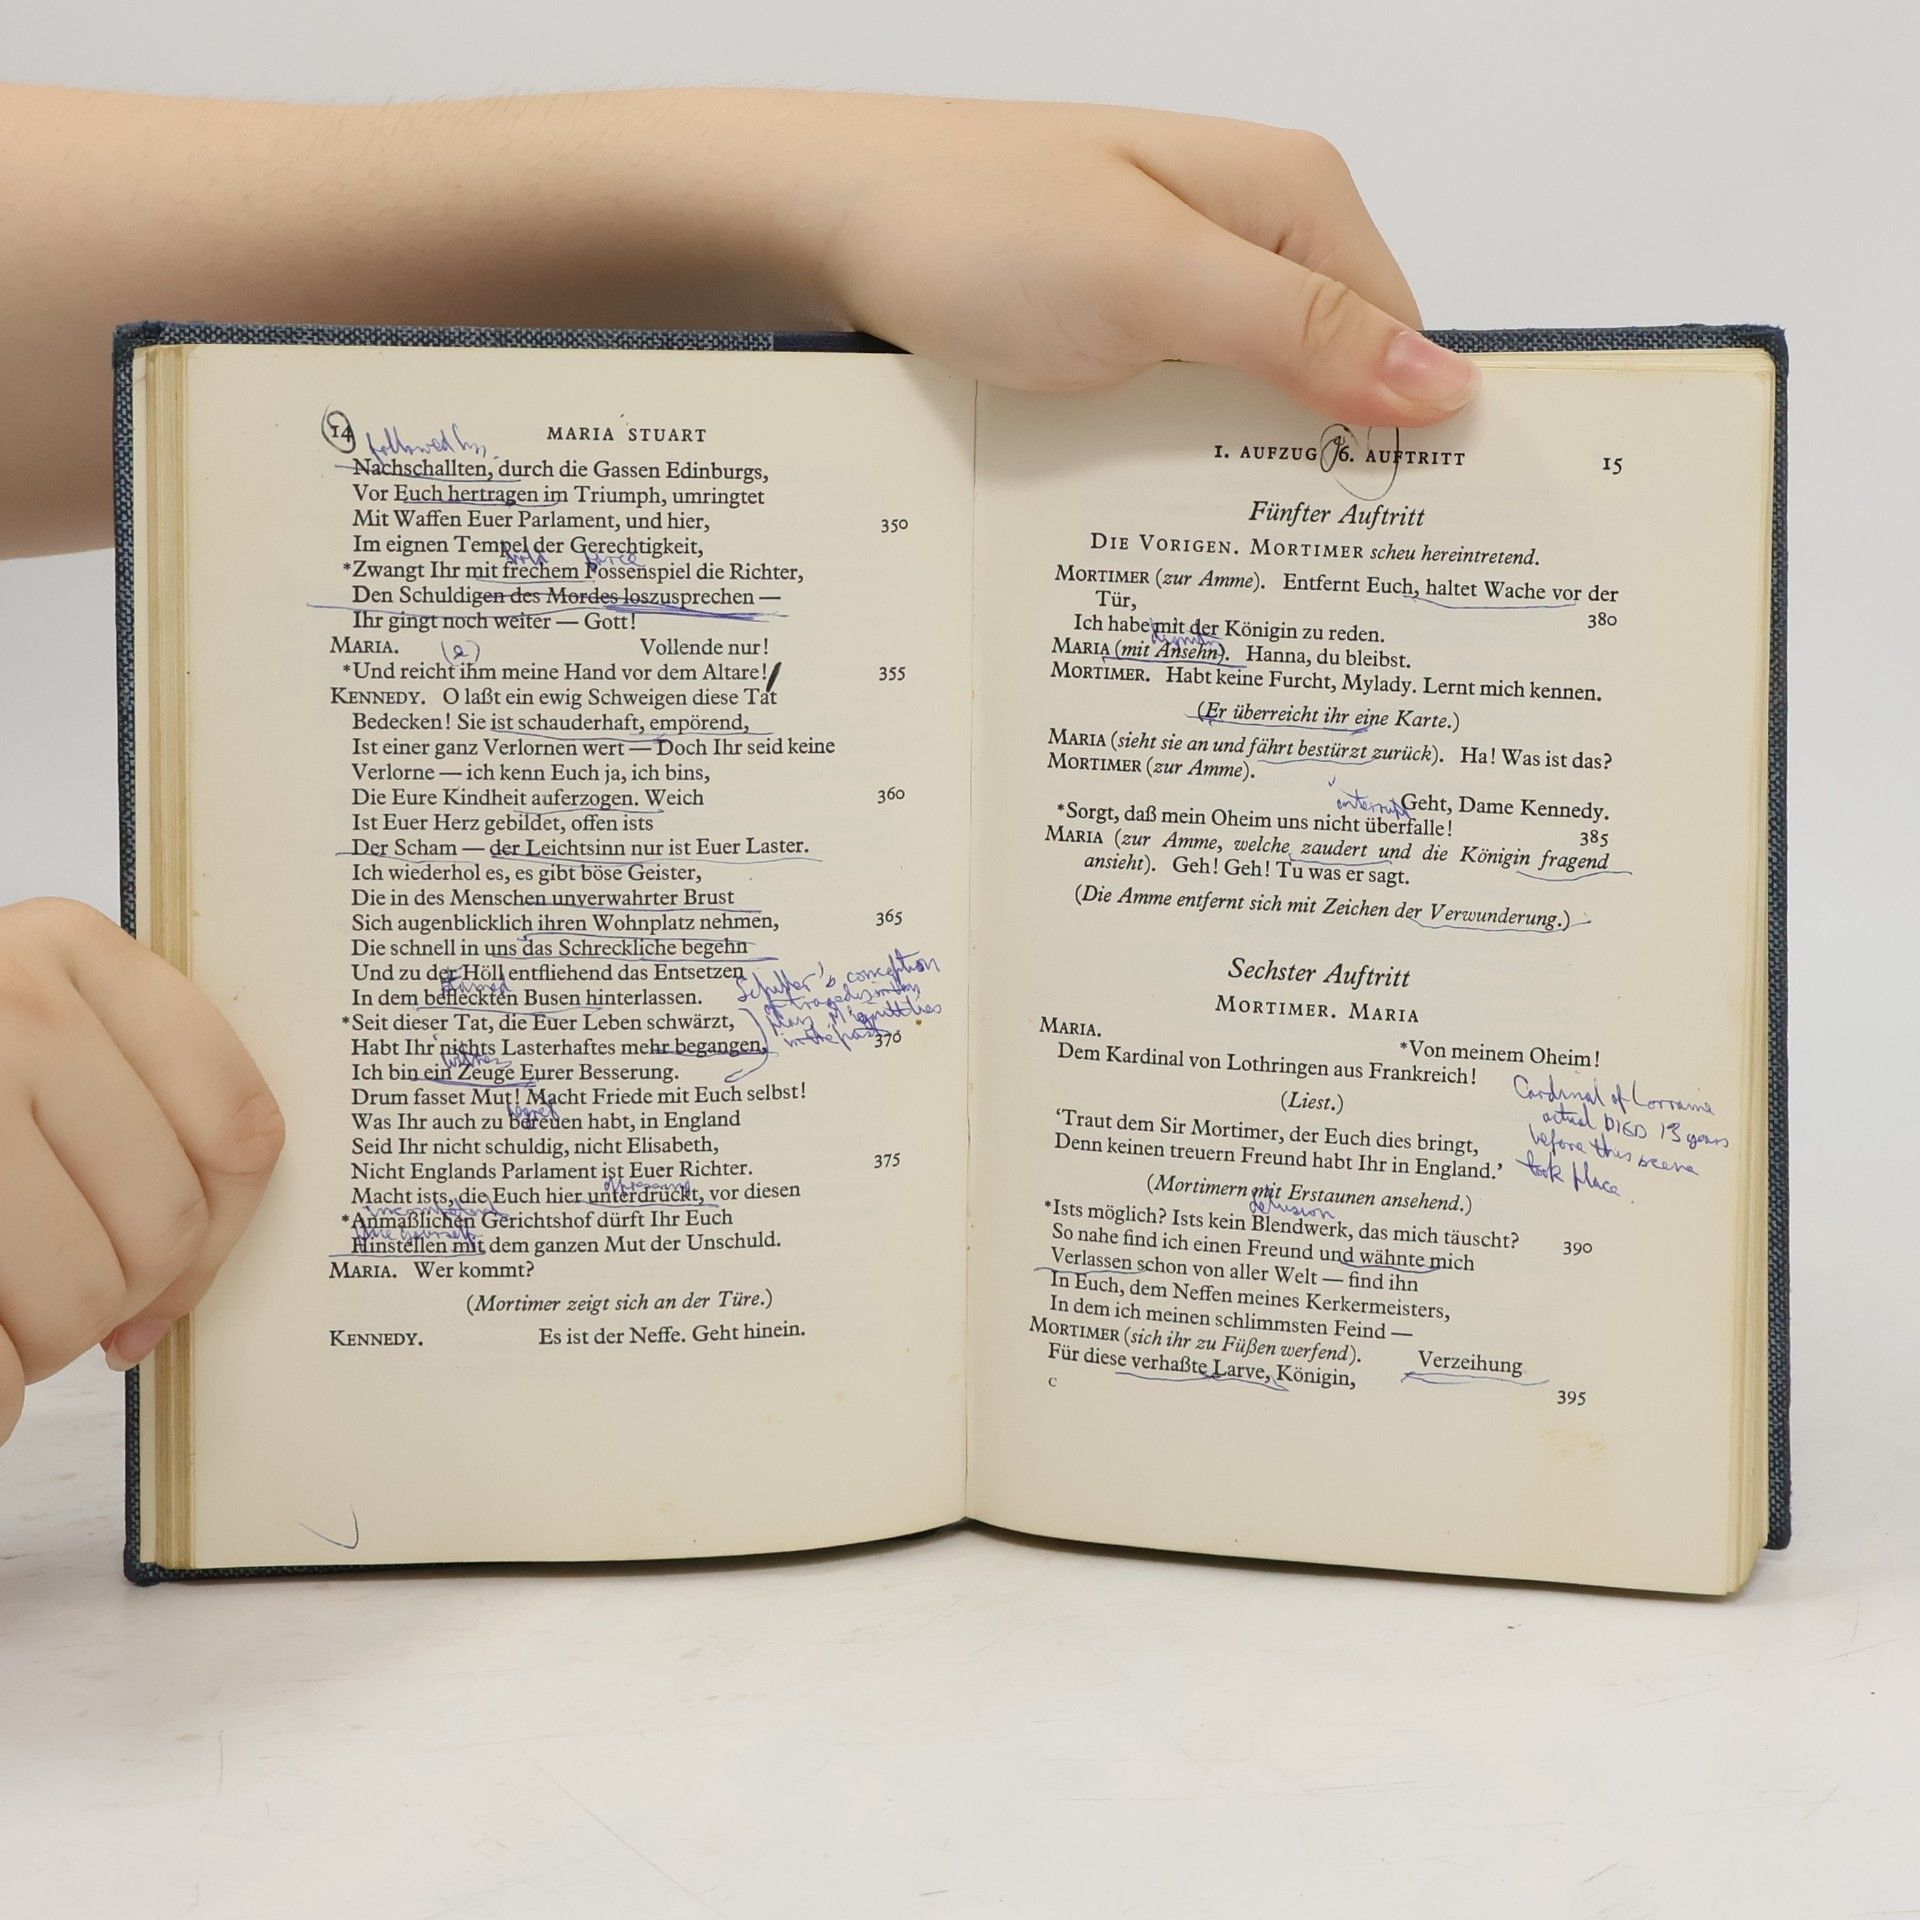 14 MARIA STUART
followed by
Nachschallten, durch die Gassen Edinburgs,
Vor Euch hertragen im Triumph, umringtet
Mit Waffen Euer Parlament, und hier, 350
Im eignen Tempel der Gerechtigkeit,
bold farce
*Zwangt Ihr mit frechem Possenspiel die Richter,
Den Schuldigen des Mordes loszusprechen —
Ihr gingt noch weiter — Gott!
MARIA. (e) Vollende nur!
*Und reicht ihm meine Hand vor dem Altare! 355
KENNEDY. O laßt ein ewig Schweigen diese Tat
Bedecken! Sie ist schauderhaft, empörend,
Ist einer ganz Verlornen wert — Doch Ihr seid keine
Verlorne — ich kenn Euch ja, ich bins,
Die Eure Kindheit auferzogen. Weich 360
Ist Euer Herz gebildet, offen ists
Der Scham — der Leichtsinn nur ist Euer Laster.
Ich wiederhol es, es gibt böse Geister,
Die in des Menschen unverwahrter Brust
Sich augenblicklich ihren Wohnplatz nehmen, 365
Die schnell in uns das Schreckliche begehn
Und zu der Höll entfliehend das Entsetzen
stained
In dem befleckten Busen hinterlassen.
*Seit dieser Tat, die Euer Leben schwärzt,
Habt Ihr nichts Lasterhaftes mehr begangen, 370
Schiller's conception
of tragedy
guilt lies
in the past
witness
Ich bin ein Zeuge Eurer Besserung.
Drum fasset Mut! Macht Friede mit Euch selbst!
regret
Was Ihr auch zu bereuen habt, in England
Seid Ihr nicht schuldig, nicht Elisabeth,
Nicht Englands Parlament ist Euer Richter. 375
Macht ists, die Euch hier unterdrückt, vor diesen
*Anmaßlichen Gerichtshof dürft Ihr Euch
Hinstellen mit dem ganzen Mut der Unschuld.
MARIA. Wer kommt?
(Mortimer zeigt sich an der Türe.)
KENNEDY. Es ist der Neffe. Geht hinein.
1. AUFZUG 6. AUFTRITT 15
Fünfter Auftritt
DIE VORIGEN. MORTIMER scheu hereintretend.
MORTIMER (zur Amme). Entfernt Euch, haltet Wache vor der
Tür, 380
Ich habe mit der Königin zu reden.
dignity
MARIA (mit Ansehn). Hanna, du bleibst.
MORTIMER. Habt keine Furcht, Mylady. Lernt mich kennen.
(Er überreicht ihr eine Karte.)
MARIA (sieht sie an und fährt bestürzt zurück). Ha! Was ist das?
MORTIMER (zur Amme).
Geht, Dame Kennedy.
interrupt
*Sorgt, daß mein Oheim uns nicht überfalle! 385
MARIA (zur Amme, welche zaudert und die Königin fragend
ansieht). Geh! Geh! Tu was er sagt.
(Die Amme entfernt sich mit Zeichen der Verwunderung.)
Sechster Auftritt
MORTIMER. MARIA
MARIA.
*Von meinem Oheim!
Dem Kardinal von Lothringen aus Frankreich!
(Liest.)
Cardinal of Lorraine
actual DIED 13 years
before this scene
took place.
‘Traut dem Sir Mortimer, der Euch dies bringt,
Denn keinen treuern Freund habt Ihr in England.’
(Mortimern mit Erstaunen ansehend.)
delusion
*Ists möglich? Ists kein Blendwerk, das mich täuscht? 390
So nahe find ich einen Freund und wähnte mich
Verlassen schon von aller Welt — find ihn
In Euch, dem Neffen meines Kerkermeisters,
In dem ich meinen schlimmsten Feind —
MORTIMER (sich ihr zu Füßen werfend). Verzeihung
Für diese verhaßte Larve, Königin, 395
C